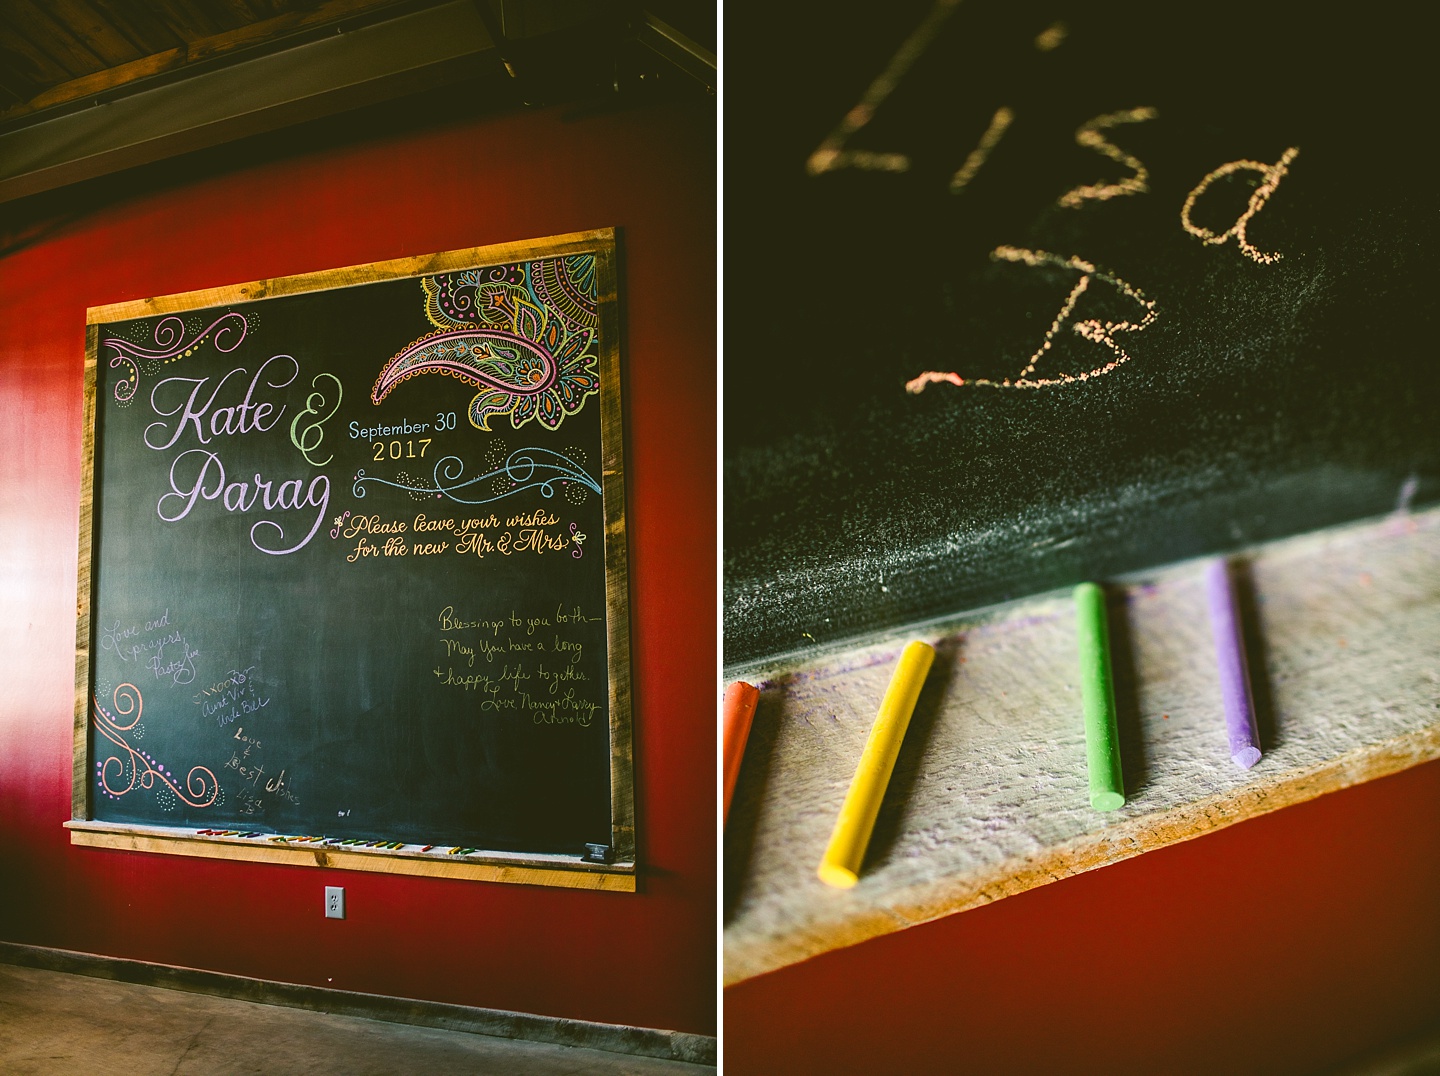 Kate &
Parag
September 30
2017
Please leave your wishes
for the new Mr. & Mrs.
Love and
prayers,
Blessings to you both—
May You have a long
+ happy life together.
Love, Nancy & Larry
Arnold
XOOXO
Aunt Viv &
Uncle Bill
Love
&
Best Wishes
Lisa
B
Lisa
B